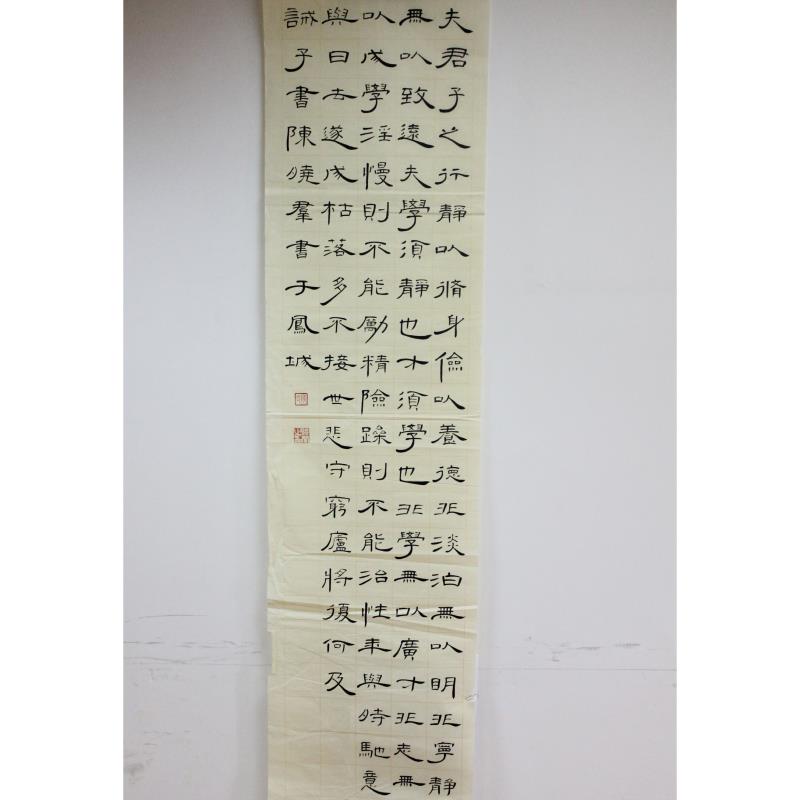 夫君子之行靜以脩身儉以養德非淡泊無以明非寧靜
無以致遠夫學須靜也才須學也非學無以廣才非志無
以成學淫慢則不能勵精險躁則不能治性年與時馳意
與日去遂成枯落多不接世悲守窮廬將復何及
誡子書陳曉羣書于鳳城